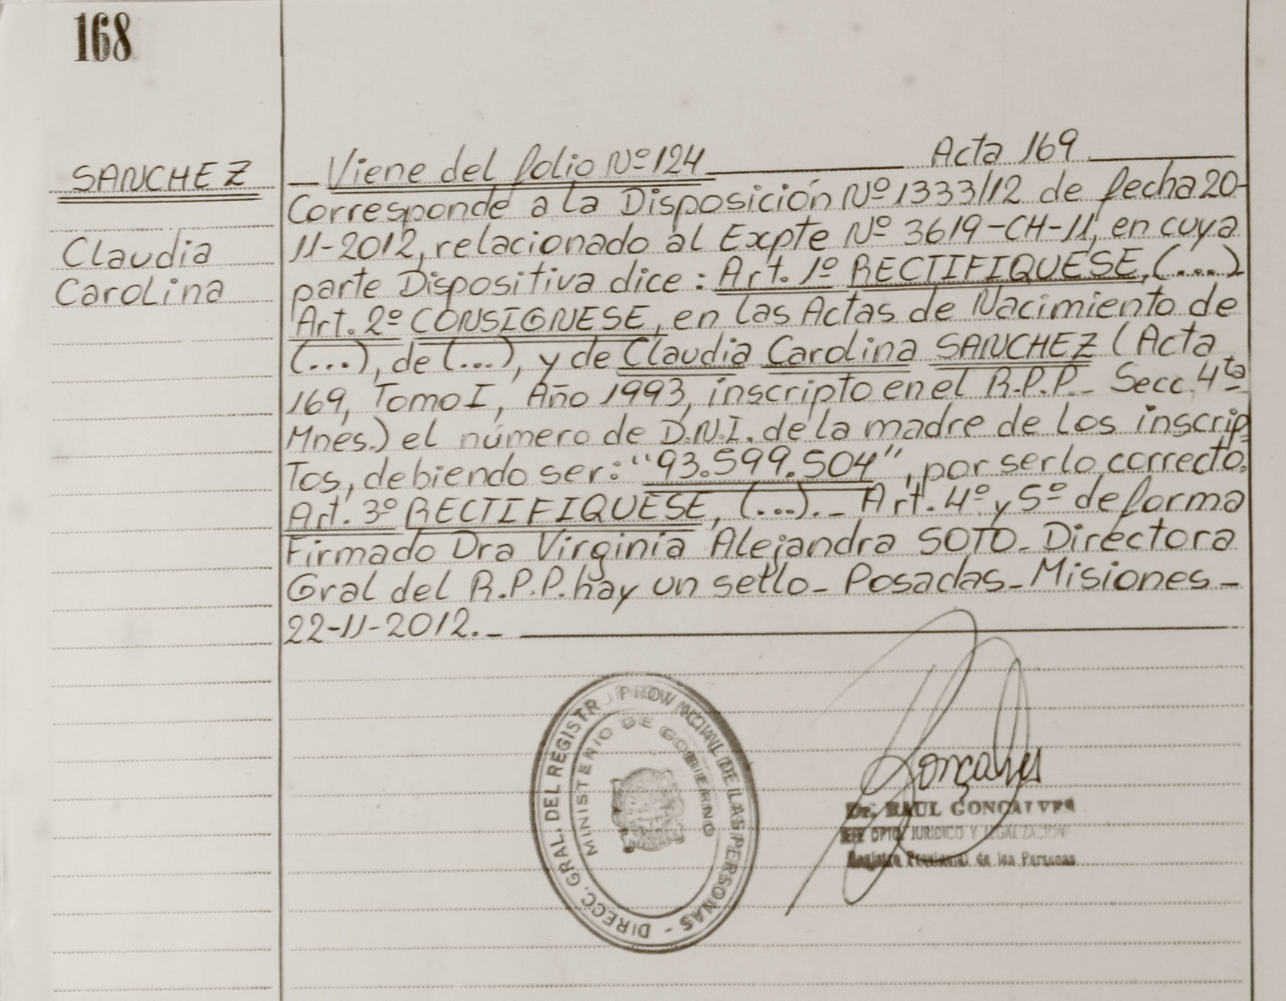 168
SANCHEZ
Claudia
Carolina
Viene del folio Nº 124 Acta 169
Corresponde a la Disposición Nº 1333/12 de fecha 20-
11-2012, relacionado al Expte Nº 3619-CH-11, en cuya
parte Dispositiva dice: Art. 1º RECTIFIQUESE, (....)
Art. 2º CONSIGNESE, en las Actas de Nacimiento de
(...), de (...), y de Claudia Carolina SANCHEZ (Acta
169, Tomo I, Año 1993, inscripto en el R.P.P_ Secc. 4ta
Mnes.) el número de D.N.I. de la madre de los inscrip-
Tos, debiendo ser: "93.599.504", por ser lo correcto.
Art. 3º RECTIFIQUESE, (...)._ Art. 4º y 5º de forma
Firmado Dra Virginia Alejandra SOTO_ Directora
Gral del R.P.P. hay un sello_ Posadas_Misiones_
22-11-2012._
DIRECC. GRAL. DEL REGISTR PROVINCIAL DE LAS PERSONAS -
MINISTERIO DE GOBIERNO
Goncalves
Dr. RAUL GONCALVES
JEFE DPTO. JURIDICO Y LEGALIZACION
Registro Provincial de las Personas